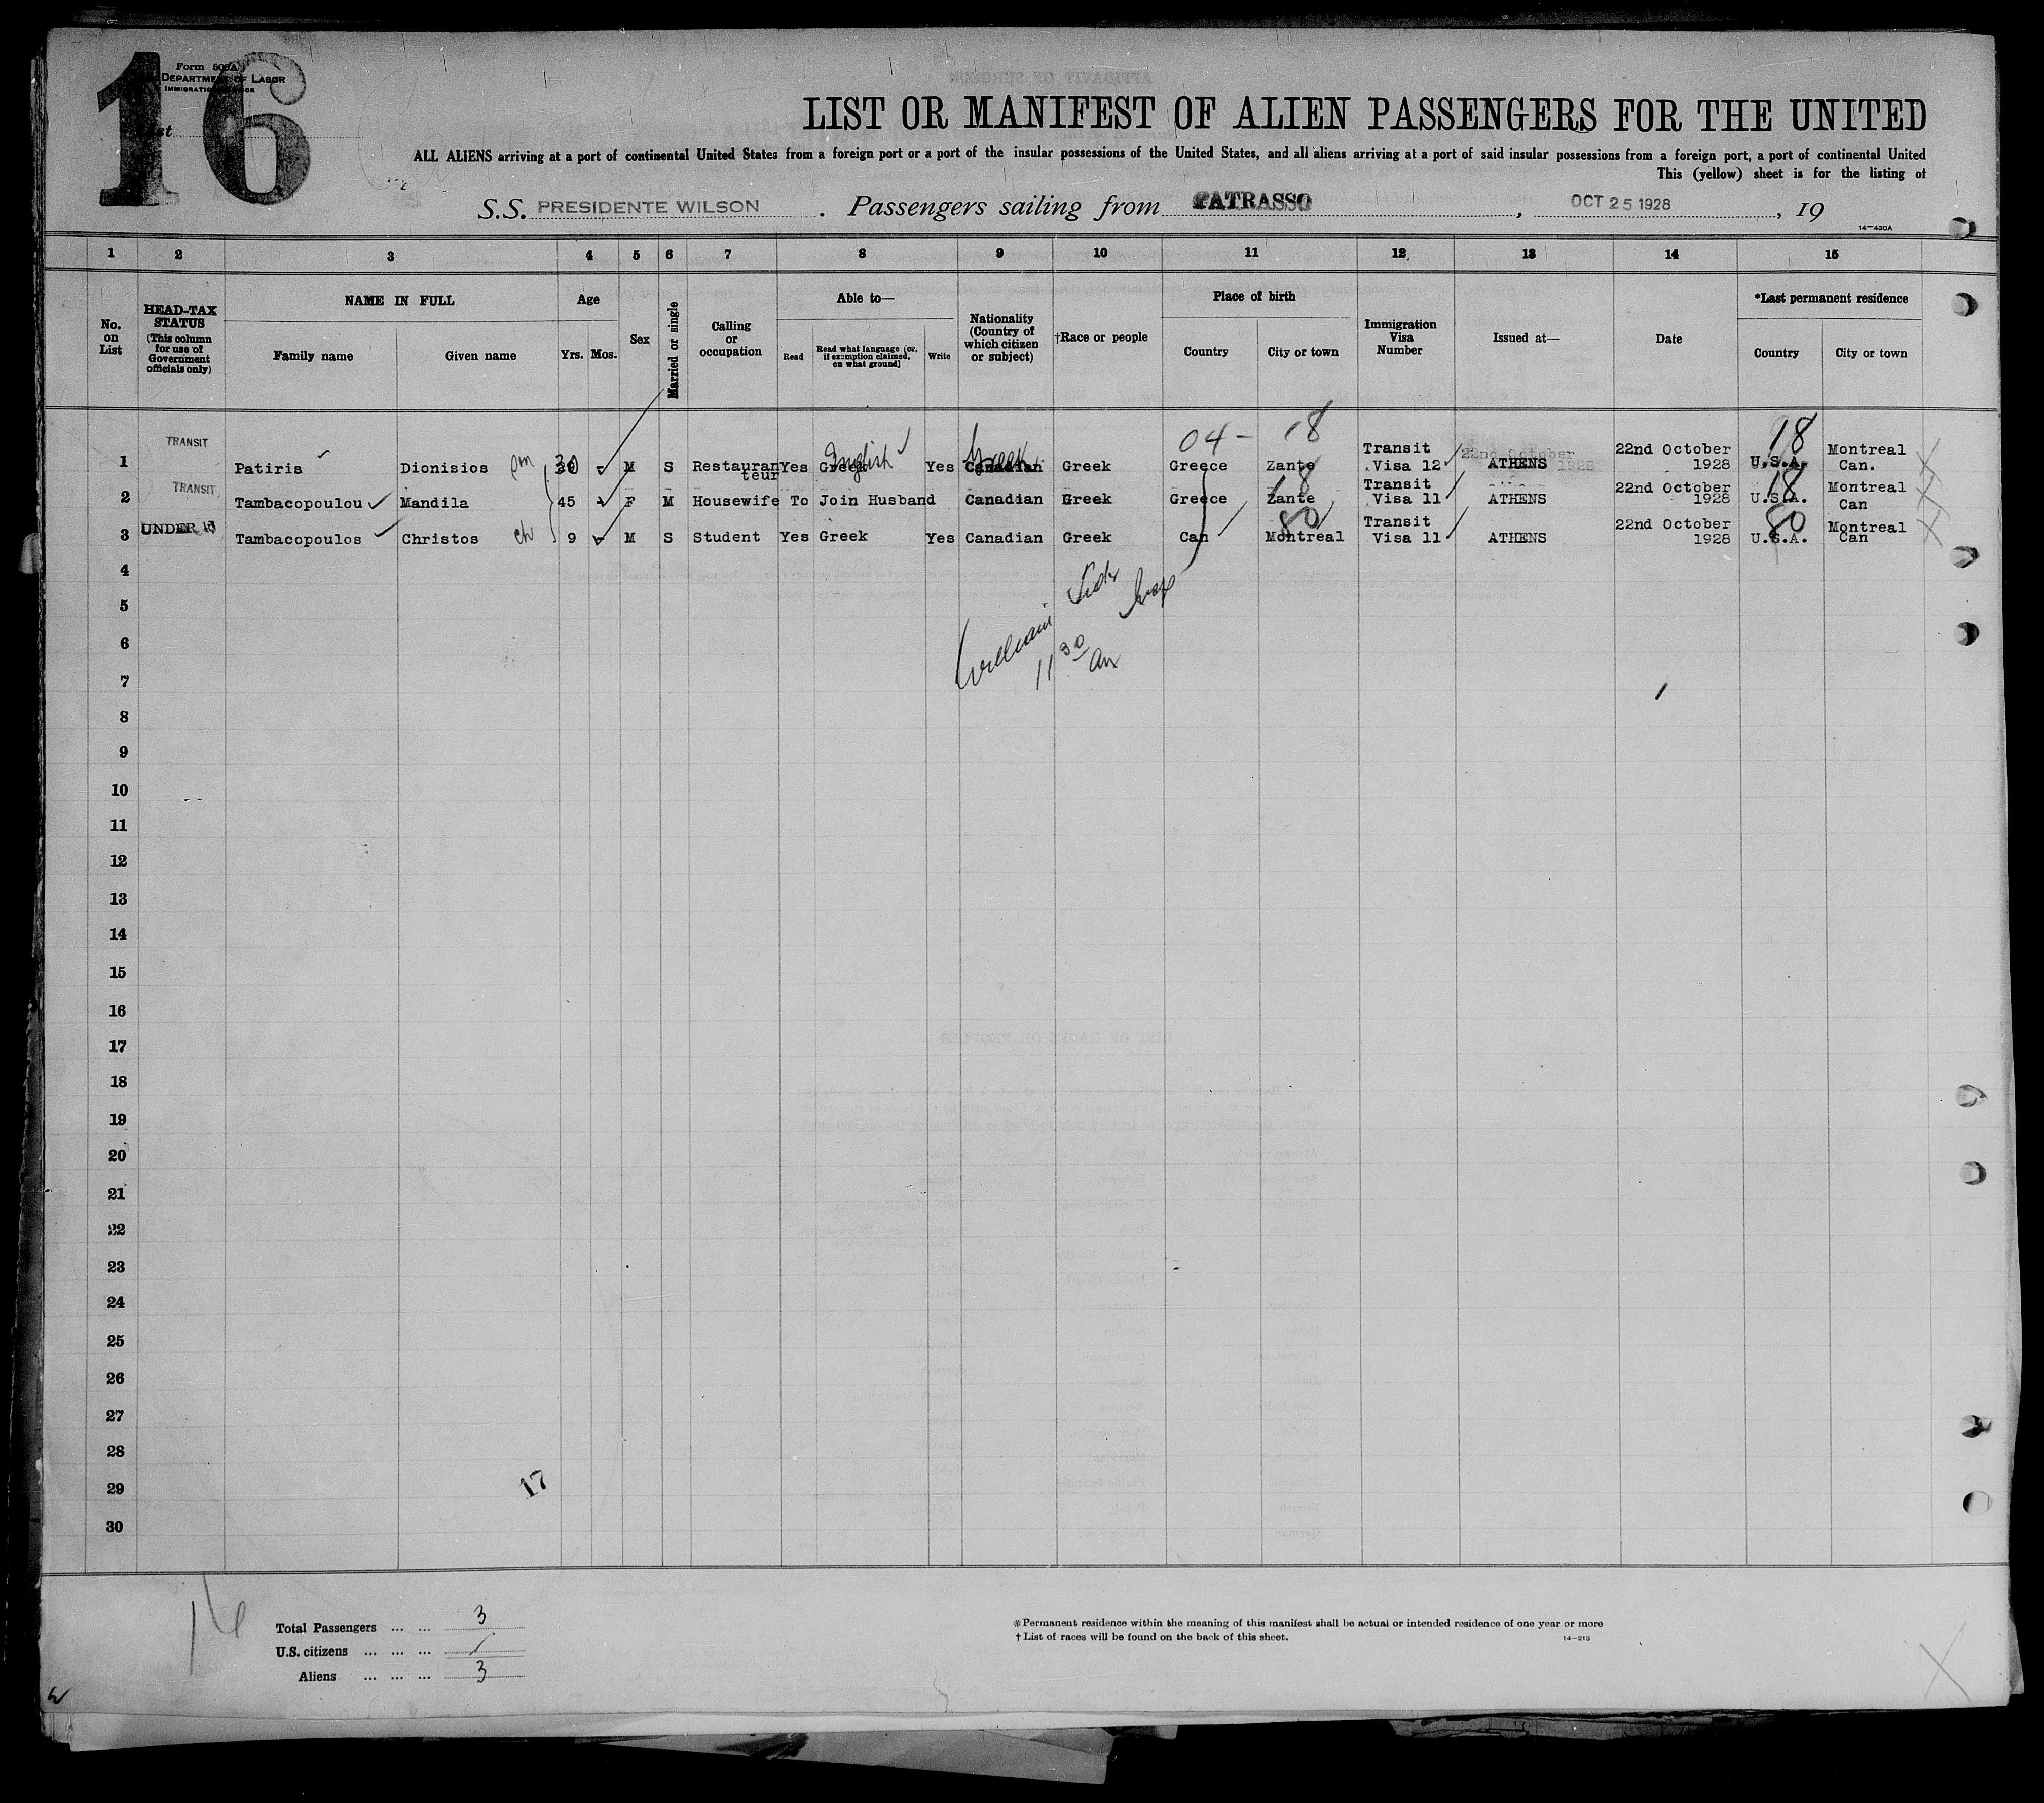 16
Form 500A
DEPARTMENT OF LABOR
IMMIGRATION SERVICE
List
LIST OR MANIFEST OF ALIEN PASSENGERS FOR THE UNITED
ALL ALIENS arriving at a port of continental United States from a foreign port or a port of the insular possessions of the United States, and all aliens arriving at a port of said insular possessions from a foreign port, a port of continental United
This (yellow) sheet is for the listing of
S.S. PRESIDENTE WILSON . Passengers sailing from PATRASSO , OCT 25 1928 , 19
14—430A
1 2 3 4 5 6 7 8 9 10 11 12 13 14 15
No. on List
HEAD-TAX STATUS
(This column for use of Government officials only)
NAME IN FULL
Family name Given name
Age
Yrs. Mos.
Sex
Married or single
Calling or occupation
Able to—
Read Read what language (or, if exemption claimed, on what ground) Write
Nationality (Country of which citizen or subject)
†Race or people
Place of birth
Country City or town
Immigration Visa Number
Issued at—
Date
*Last permanent residence
Country City or town
04 - 18 18
1 TRANSIT Patiris Dionisios 30 M S Restauranteur Yes Greek English Yes Canadian Greek Greek Greece Zante Transit Visa 12 22nd October 1928 ATHENS 22nd October 1928 U.S.A. Montreal Can.
18 18
2 TRANSIT Tambacopoulou Mandila 45 F M Housewife To Join Husband Canadian Greek Greece Zante Transit Visa 11 ATHENS 22nd October 1928 U.S.A. Montreal Can
80 80
3 UNDER 16 Tambacopoulos Christos ch 9 M S Student Yes Greek Yes Canadian Greek Can Montreal Transit Visa 11 ATHENS 22nd October 1928 U.S.A. Montreal Can
4
5
6 William
7 11 30 am
8
9
10
11
12
13
14
15
16
17
18
19
20
21
22
23
24
25
26
27
28
29 17
30
16
Total Passengers ... ... 3
U.S. citizens ... ... ... /
Aliens ... ... ... 3
*Permanent residence within the meaning of this manifest shall be actual or intended residence of one year or more
†List of races will be found on the back of this sheet. 14—213